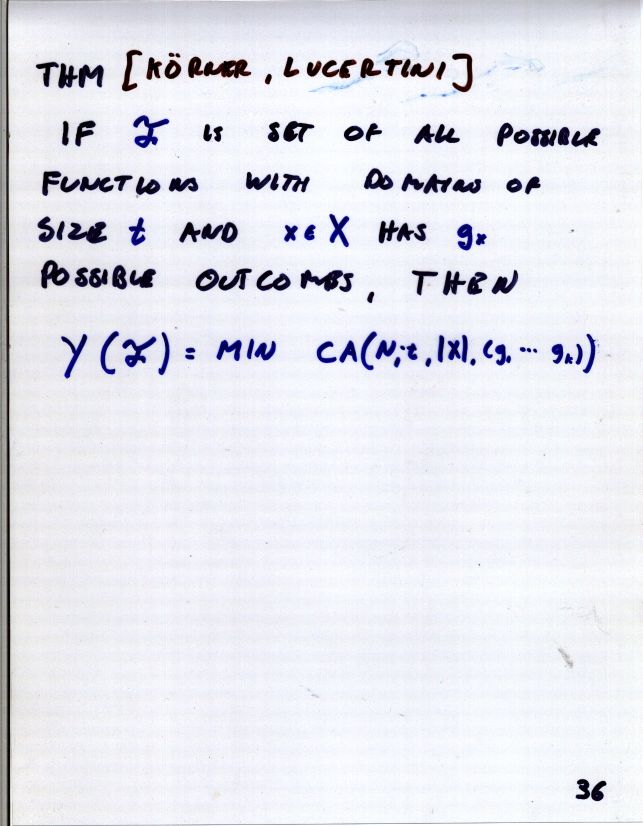 THM [KÖRNER, LUCERTINI]
IF ℱ IS SET OF ALL POSSIBLE
FUNCTIONS WITH DOMAINS OF
SIZE t AND x ∈ X HAS gₓ
POSSIBLE OUTCOMES, THEN
Y(ℱ) = MIN CA(N;t,|X|,(g₁ ⋯ gₖ))
36